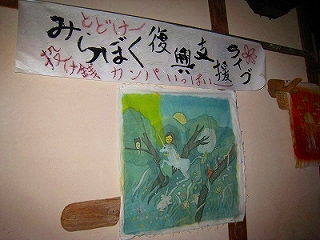 とどけー
みらぼく復興支援ライブ
投げ銭カンパいっぱい